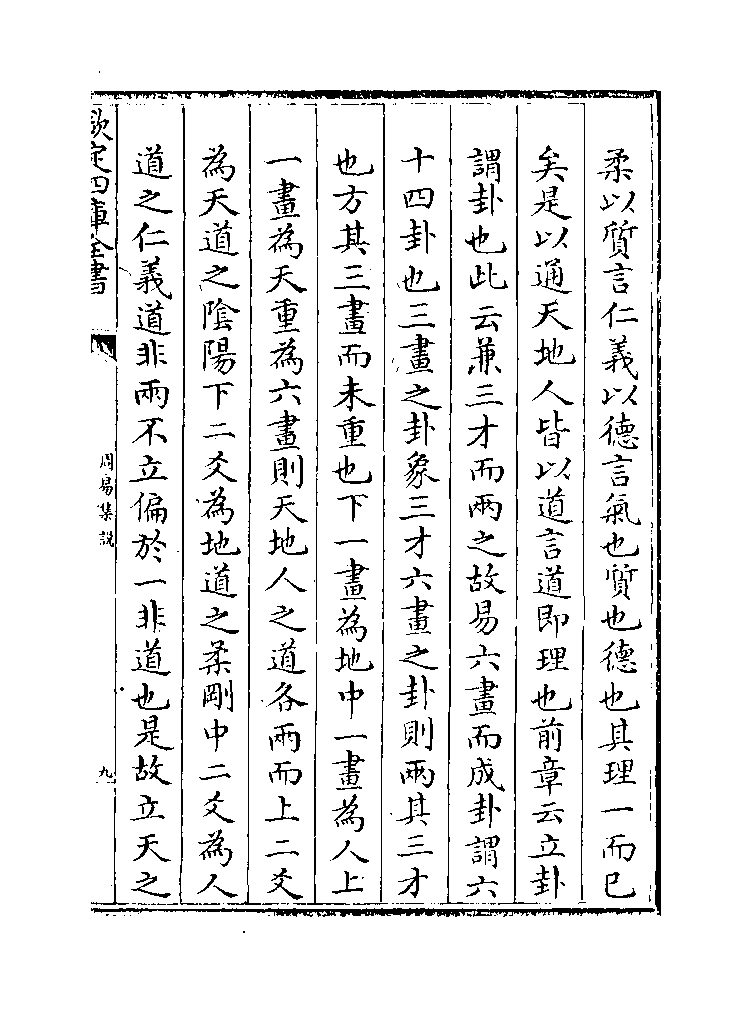 柔以質言仁義以德言氣也質也德也其理一而已
矣是以通天地人皆以道言道即理也前章云立卦
謂卦也此云兼三才而兩之故易六畫而成卦謂六
十四卦也三畫之卦象三才六畫之卦則兩其三才
也方其三畫而未重也下一畫為地中一畫為人上
一畫為天重為六畫則天地人之道各兩而上二爻
為天道之陰陽下二爻為地道之柔剛中二爻為人
道之仁義道非兩不立偏於一非道也是故立天之
欽定四庫全書
周易集說
九